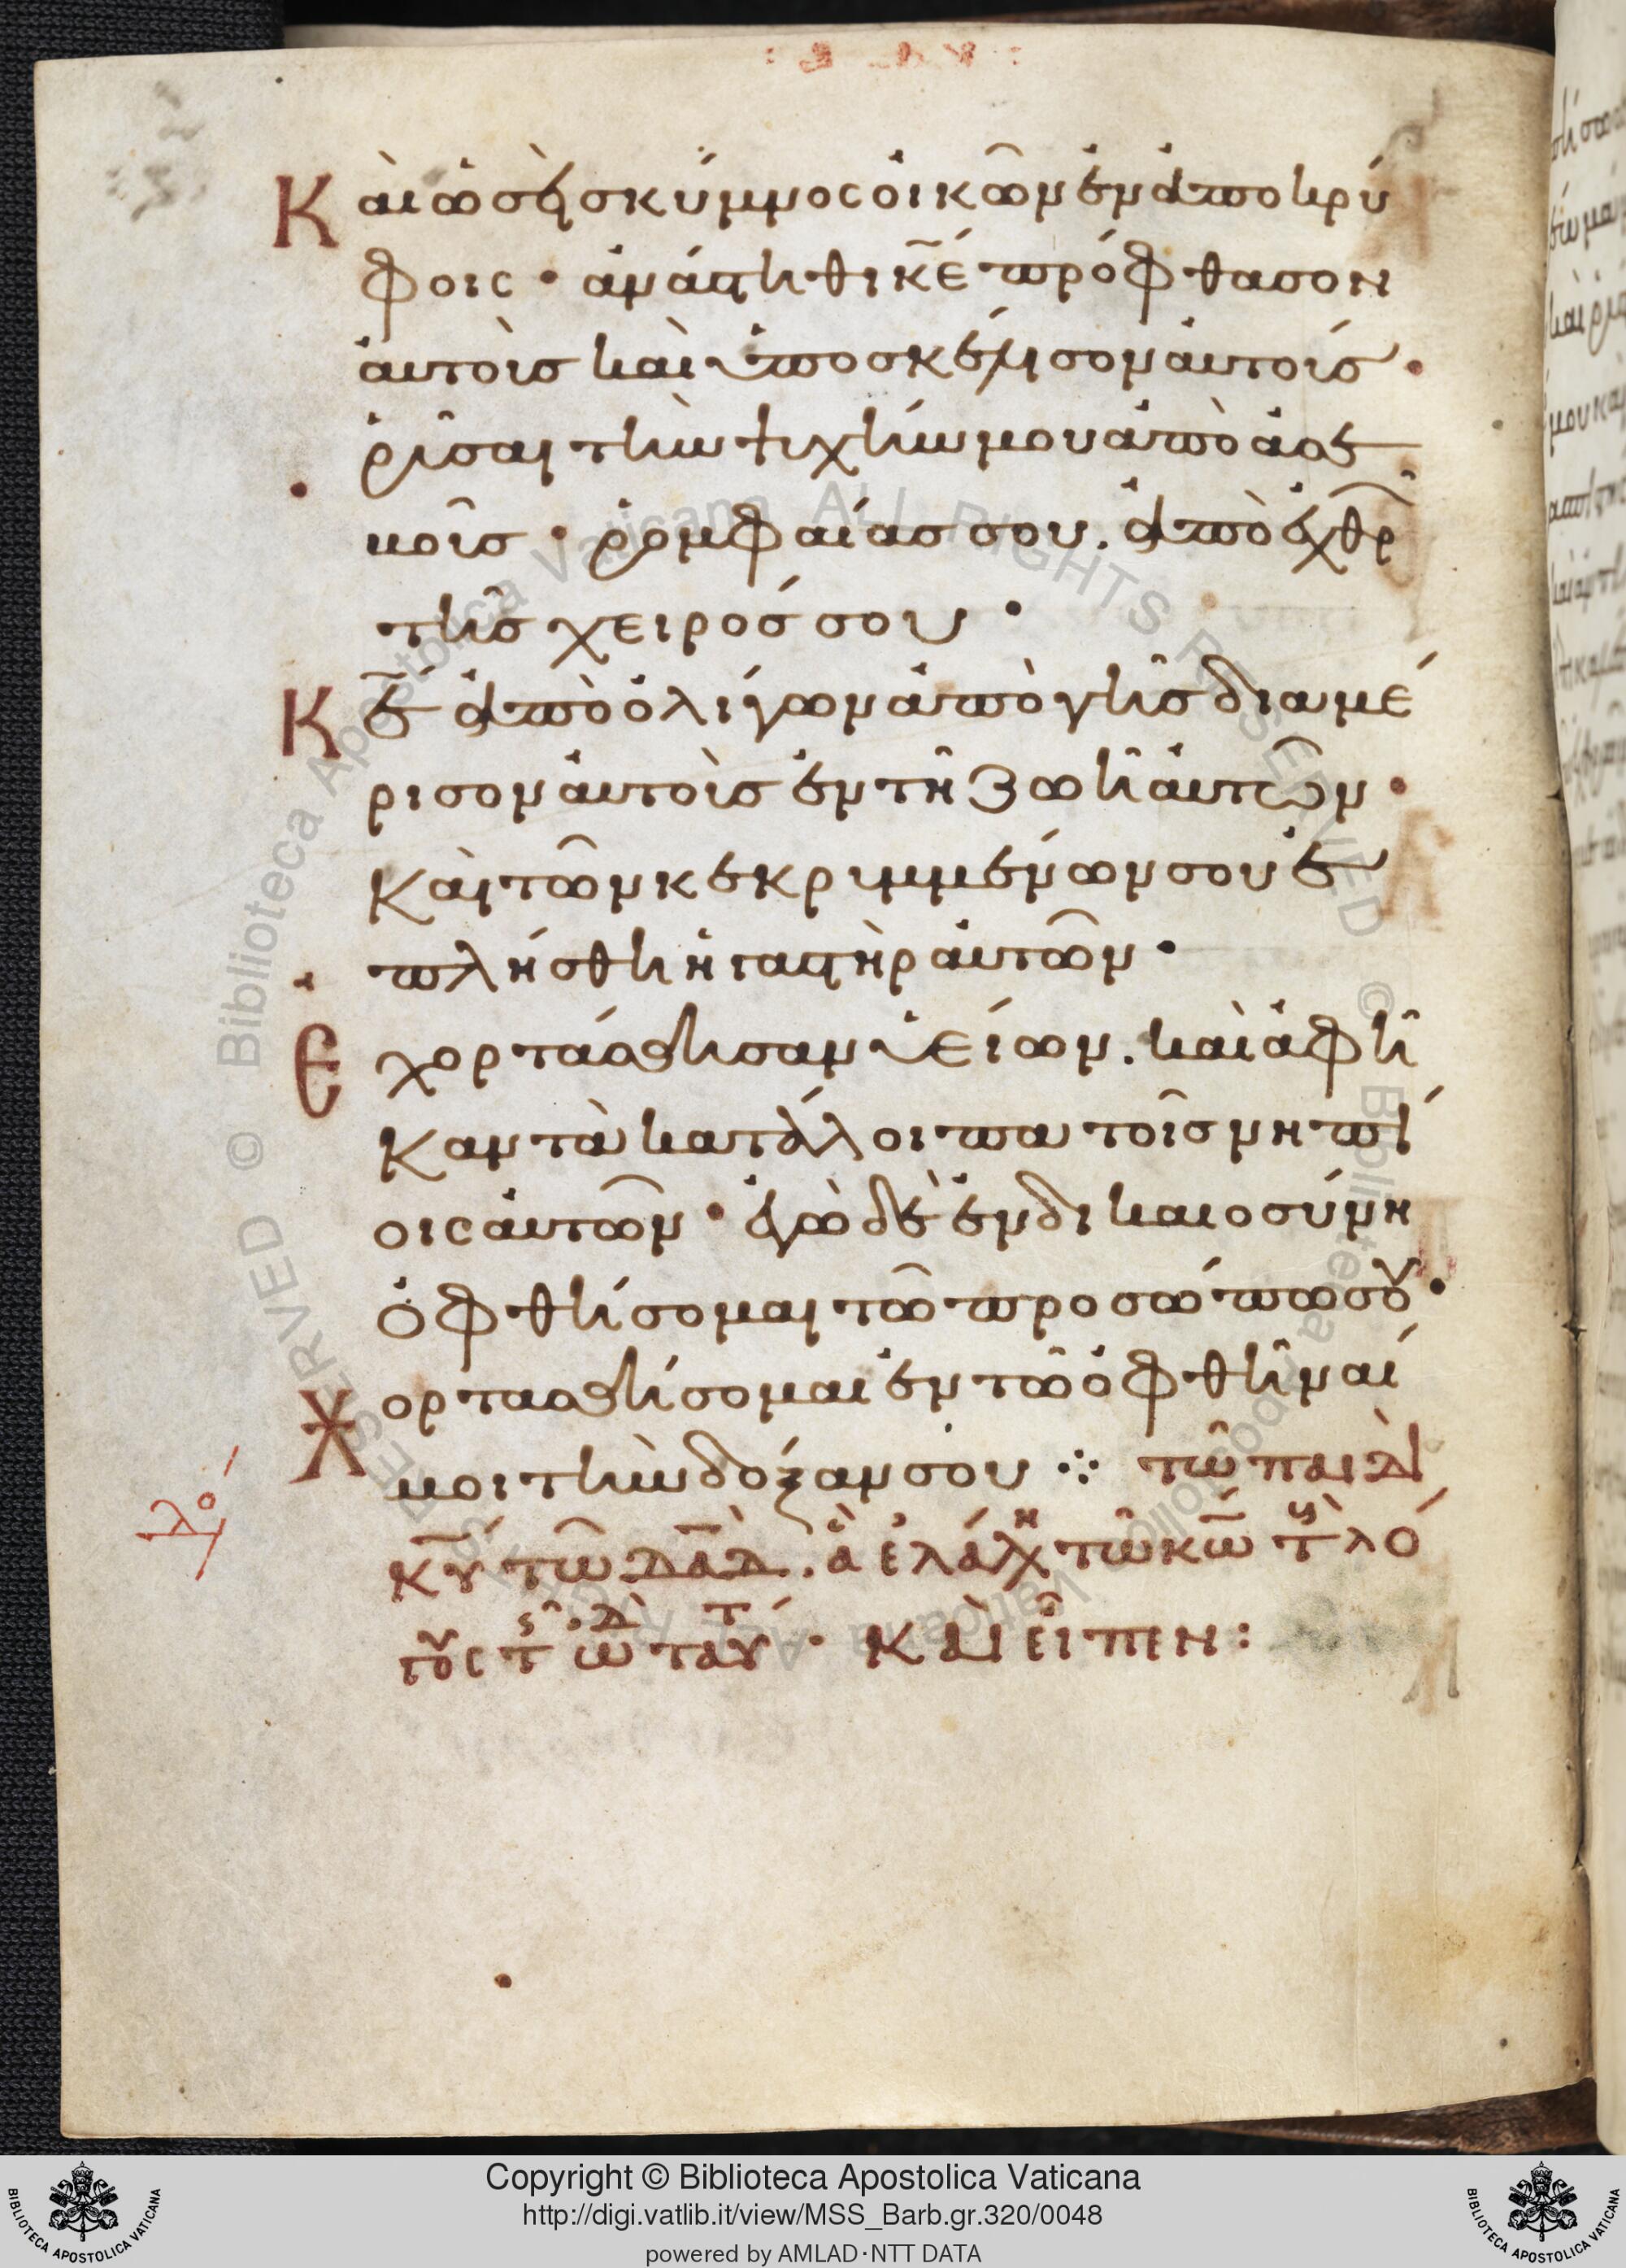 Κ αὶ ὡσεὶ σκύμνος οἰκῶν ἐν ἀποκρύ
φοις · ἀνάστηθι κ̅ε̅ πρόφθασον
ἀυτοὺς καὶ ὑποσκέλισον ἀυτούς ·
ῥῦσαι τὴν ψυχήν μου ἀπὸ ἀσε
βοῦς · ῥομφαίας σου . ἀπὸ ἐχθρ
τῆς χειρός σου ·
Κ ε̅ ἀπὸ ὀλίγων ἀπὸ γῆς διαμέ
ρισον ἀυτοὺς ἐν τῆ ζωῆ ἀυτῶν ·
Καὶ τῶν κεκρυμμένων σου ἐ
πλήσθη ἡ γαστὴρ ἀυτῶν ·
Ε χορτάσθησαν ὑείων . καὶ ἀφῆ
καν τὰ κατάλοιπα τοῖς νηπί
οις ἀυτῶν · ἐγὼ δὲ ἐν δικαιοσύνη
ὀφθήσομαι τῶ προσώπω σου ·
Χ ορτασθήσομαι ἐν τῶ ὀφθῆναί
μοι τὴν δόξαν σου ⁘ τῶ παιδὶ
κ̅υ̅ τῶ δ̅α̅δ̅ . ἃ ἐλάλη τῶ κ̅ω̅ τ λό
τους τ ω δ ταυτ · Καὶ εἶπεν :
Copyright © Biblioteca Apostolica Vaticana
http://digi.vatlib.it/view/MSS_Barb.gr.320/0048
powered by AMLAD·NTT DATA
BIBLIOTECA APOSTOLICA VATICANA
BIBLIOTECA APOSTOLICA VATICANA